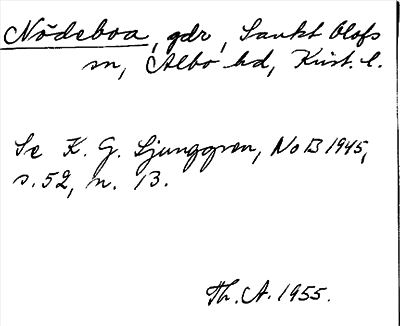 Nödeboa, gdr, Sankt Olofs
sn, Albo hd, Krist. l.
Se K. G. Ljunggren, NoB 1945,
s. 52, n. 13.
Th. A. 1955.